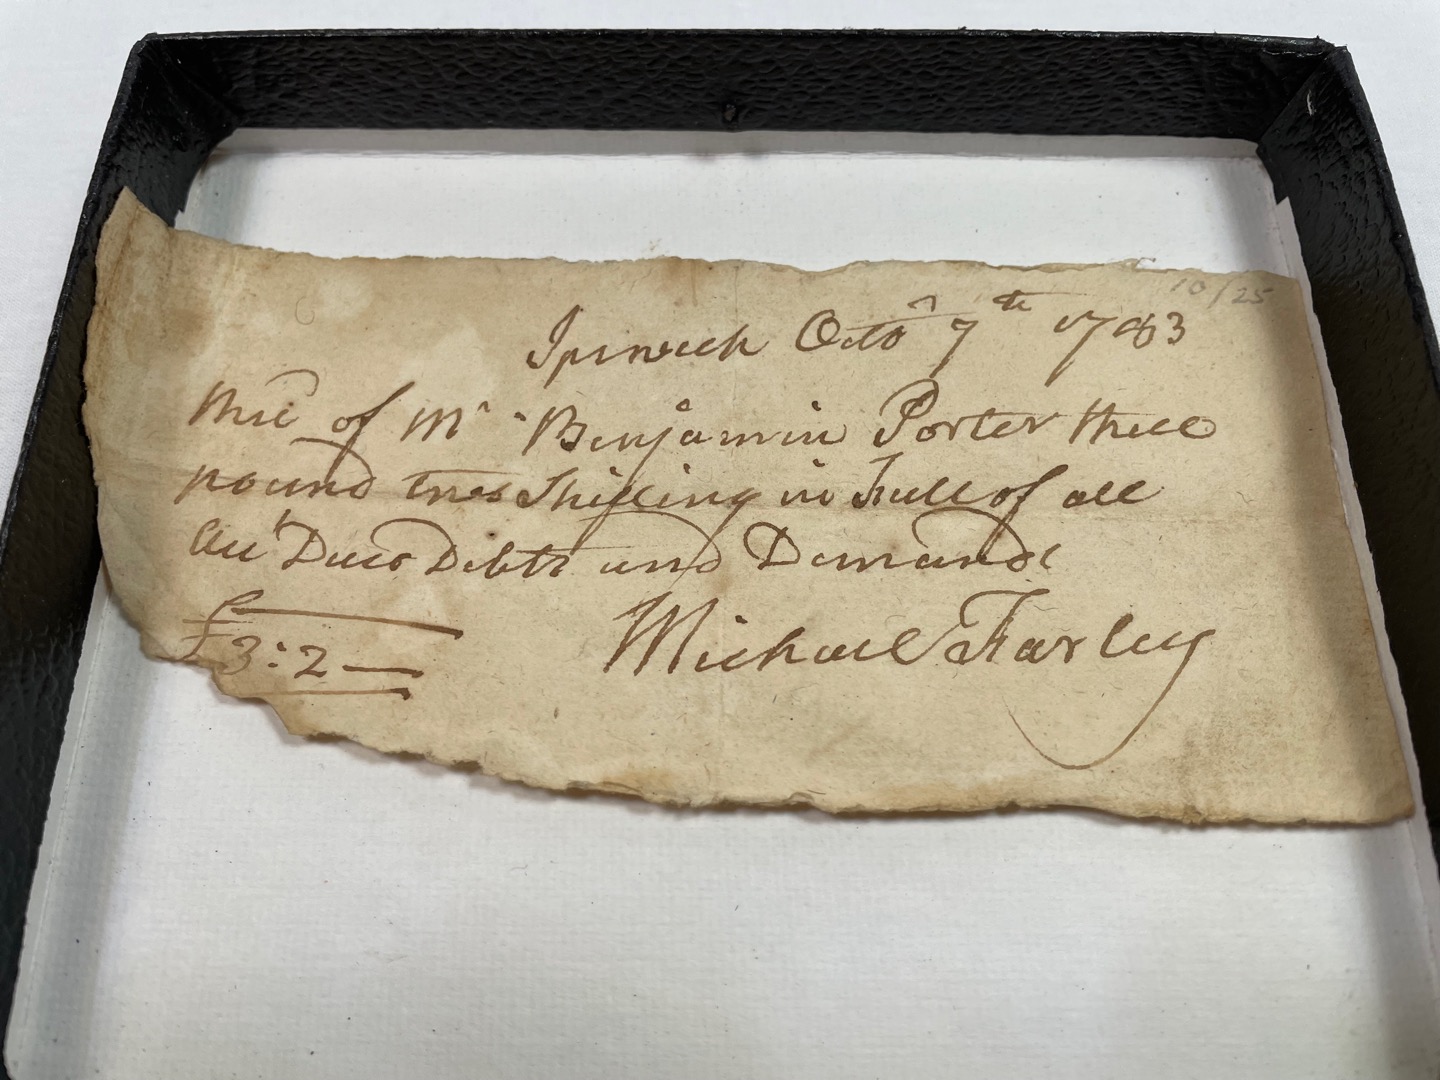 10/25
Ipswich Octor 7th 1783
of Mr Benjamin Porter three
pound Shilling in Full of all
Dues Debts and Demands
£3:2—
Michael Farley